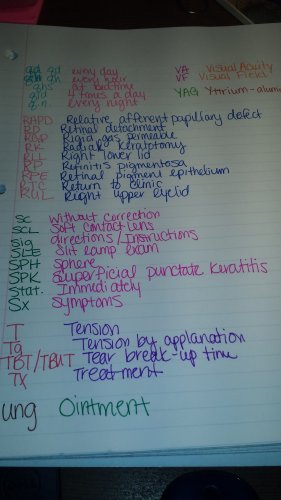 qd qd every day VA Visual Acuity
qh qh every hour VF Visual Field
qhs at bedtime
qid 4 times a day YAG Yttrium-alum
q.n. every night
RAPD Relative afferent papillary defect
RD Retinal detachment
RGP Rigid gas permeable
RK Radial keratotomy
RLL Right lower lid
RP Retinitis pigmentosa
RPE Retinal pigment epithelium
RTC Return to clinic
RUL Right upper eyelid
SC without correction
SCL Soft contact lens
sig directions/Instructions
SLE Slit lamp exam
SPH Sphere
SPK Superficial punctate keratitis
Stat. Immediately
Sx Symptoms
T Tension
Ta Tension by applanation
TBT/TBUT Tear break-up time
TX Treatment
ung Ointment